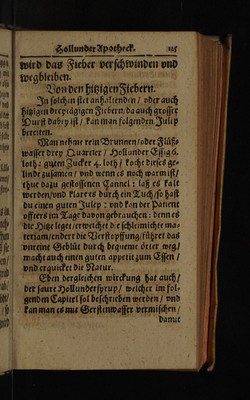 Hollunder Apotheck. 125
wird das Fieber verschwinden und
wegbleiben.
Von den hitzigen Fiebern.
In solchen stet anhaltenden / oder auch
hitzigen dreytägigen Fiebern / da auch grosser
Durst dabey ist / kan man folgenden Julep
bereiten.
Man nehme rein Brunnen / oder Flüß-
wasser drey Quartier / Hollunder Essig 6.
loth: guten Zucker 4. loth / koche dieses ge-
linde zusamen / und wenn es noch warm ist /
thue dazu gestossenen Cannel: laß es kalt
werden / und kläre es durch ein Tuch / so hast
du einen guten Julep: und kan der Patient
offters im Tage davon gebrauchen: denn es
die Hitze leget / erweichet die schleimichte ma-
teriam / endert die Verstopffung / führet das
unreine Geblüt durch bequeme örter weg /
macht auch einen guten appetit zum Essen /
und erquicket die Natur.
Eben dergleichen wirckung hat auch /
der saure Hollundersyrup / welcher im fol-
genden Capitel sol beschrieben werden / und
kan man es mit Gerstenwasser vermischen /
damit